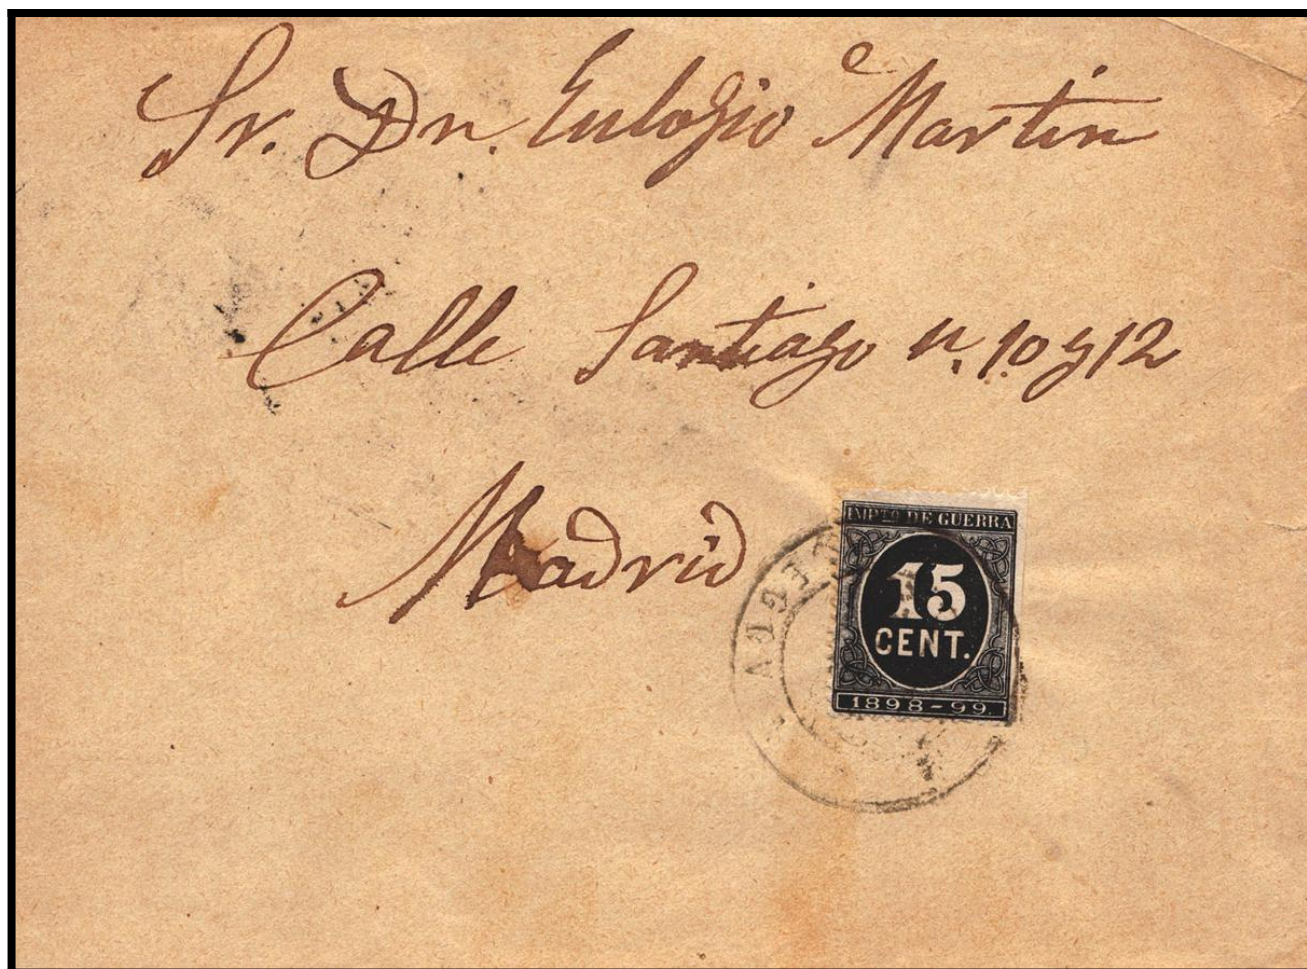 Sr. Dn. Eulogio Martin
Calle Santiago n. 10 y 12
Madrid
IMPTO DE GUERRA
15
CENT.
1898-99.